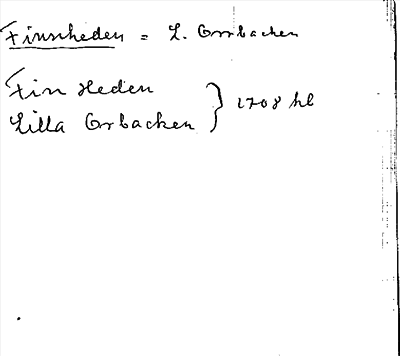 Finnheden = L. Orrbacken
Finn Heden
Lilla Orbacken } 1708 hl